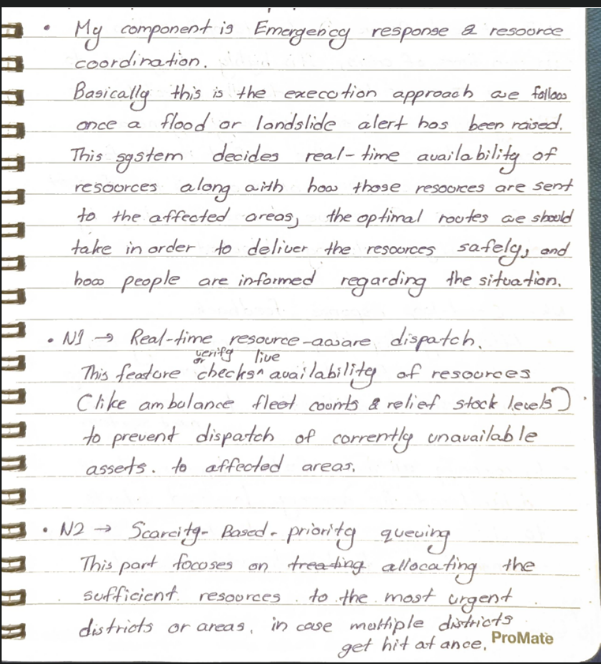 • My component is Emergency response & resource
coordination.
Basically this is the execution approach we follow
once a flood or landslide alert has been raised.
This system decides real-time availability of
resources along with how those resources are sent
to the affected areas, the optimal routes we should
take in order to deliver the resources safely, and
how people are informed regarding the situation.
• N1 → Real-time resource-aware dispatch.
or verify live
This feature checks ^ availability of resources
(like ambulance fleet counts & relief stock levels)
to prevent dispatch of currently unavailable
assets. to affected areas.
• N2 → Scarcity-Based-priority queuing
This part focuses on treating allocating the
sufficient resources to the most urgent
districts or areas, in case multiple districts
get hit at once.
ProMate